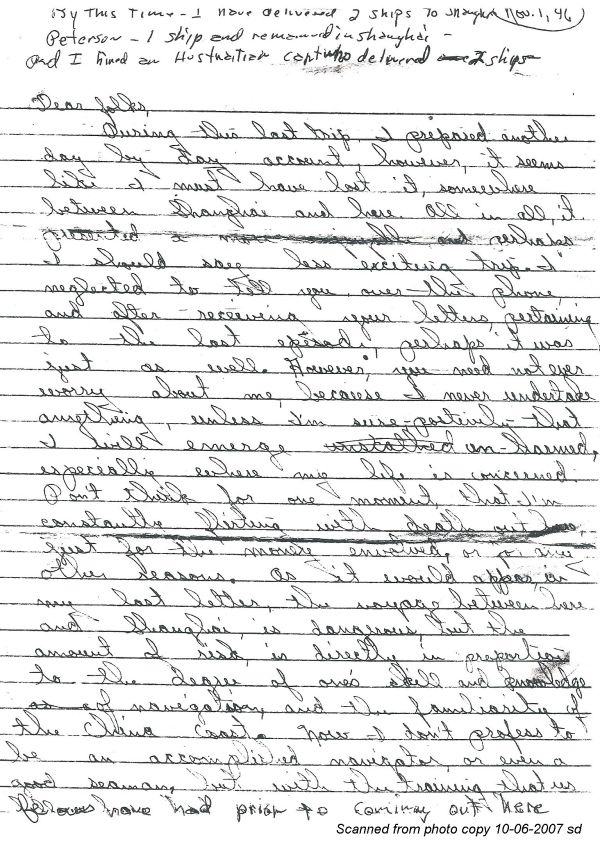 By This Time - I have delivered 2 ships To Shanghai Nov. 1, 46
Peterson - 1 ship and remained in Shanghai -
And I hired an Austrailian capt who delivered 2 ships
Dear folks,
During this last trip, I prepared another
day by day account, however, it seems
like I must have lost it, somewhere
between Shanghai and here. All in all, it
presented a more and perhaps
I should say less exciting trip. I
neglected to tell you, over the phone,
and after receiving your letters, pertaining
to the last episode, perhaps it was
just as well. However, you need not ever
worry about me, because I never undertake
anything, unless I'm sure positively that
I will emerge un-harmed,
especially where my life is concerned.
Don't think for one moment, that I'm
constantly flirting with death out here,
just for the money envolved, or for any
other reasons. As it would appear, in
my last letter, the voyage between here
and Shanghai, is dangerous, but the
amount I risk, is directly in proportion
to the degree of one's skill and knowledge
of navigation, and the familiarity of
the China Coast. Now I don't profess to
be an accomplished navigator, or even a
good seaman, but with the training that us
fellows have had prior to coming out here
Scanned from photo copy 10-06-2007 sd